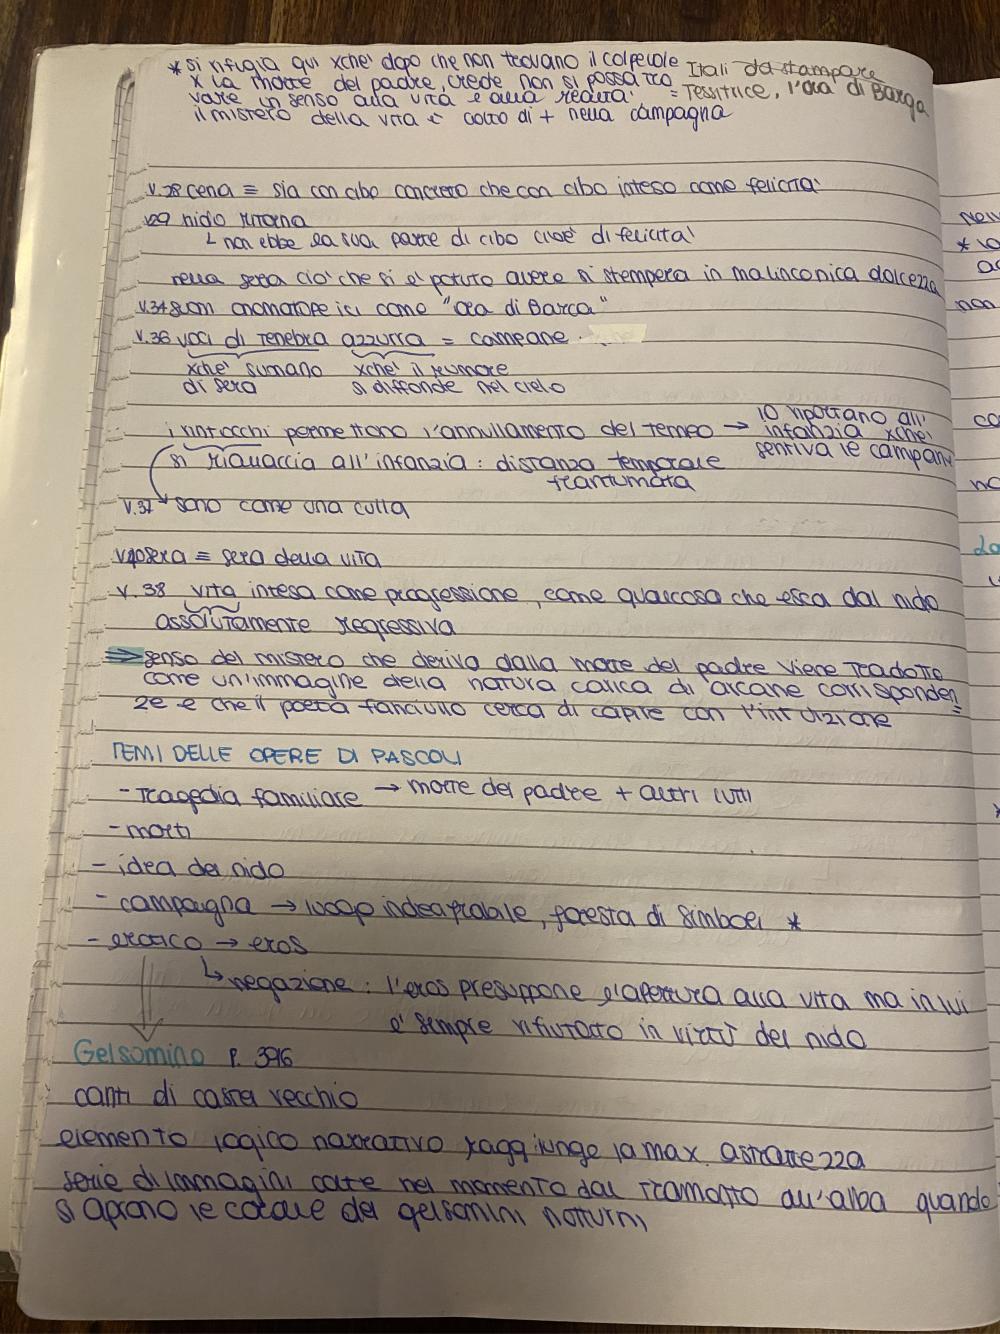 * si rifugia qui xchè dopo che non trovano il colpevole
x la morte del padre, crede non si possa tro=
vare un senso alla vita e alla realtà.
il mistero della vita è colto di + nella campagna
Itali da stampare
Tessitrice, l'ora di Barga
v.28 cena = sia con cibo concreto che con cibo inteso come felicità
v29 nido ritorna
↳ non ebbe la sua parte di cibo cioè di felicità
nella sera ciò che si è potuto avere si stempera in malinconica dolcezza
v.34 suoni onomatopeici come "ora di Barca"
v.36 voci di tenebra azzurra = campane
xchè suonano xchè il rumore
di sera si diffonde nel cielo
i rintocchi permettono l'annullamento del tempo → lo riportano all'
infanzia xchè
sentiva le campan
si riallaccia all'infanzia: distanza temporale
frantumata
v.37 sono come una culla
v40 sera = sera della vita
v. 38 vita intesa come progressione, come qualcosa che esca dal nido
assolutamente regressiva
⇒ senso del mistero che deriva dalla morte del padre viene tradotto
come un'immagine della natura carica di arcane corrisponden=
ze e che il poeta fanciullo cerca di capire con l'intuizione
TEMI DELLE OPERE DI PASCOLI
- tragedia familiare → morte del padre + altri lutti
- morti
- idea del nido
- campagna → luogo indecifrabile, foresta di simboli *
- erotico → eros
↳ negazione: l'eros presuppone l'apertura alla vita ma in lui
è sempre rifiutato in virtù del nido
Gelsomino P. 396
canti di castel vecchio
elemento logico narrativo raggiunge la max astrattezza
serie di immagini colte nel momento dal tramonto all'alba quando
si aprono le corolle dei gelsomini notturni